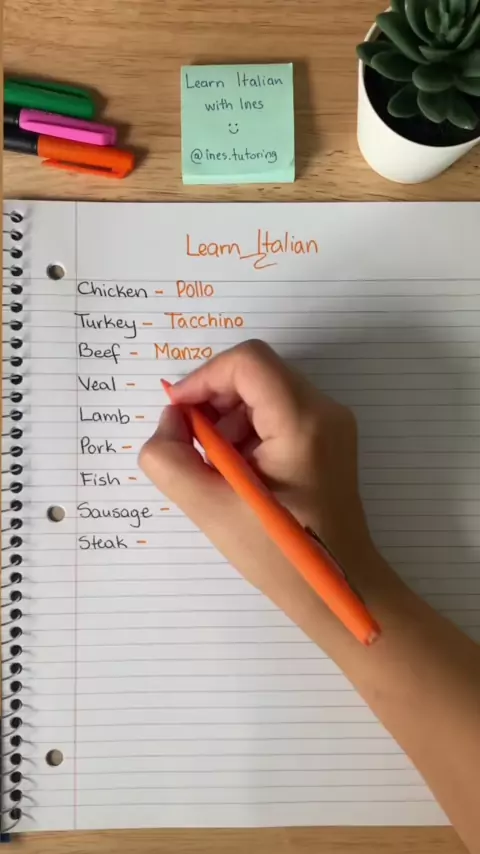 Learn Italian
with Ines
:)
@ines.tutoring
Learn Italian
Chicken - Pollo
Turkey - Tacchino
Beef - Manzo
Veal -
Lamb -
Pork -
Fish -
Sausage -
Steak -